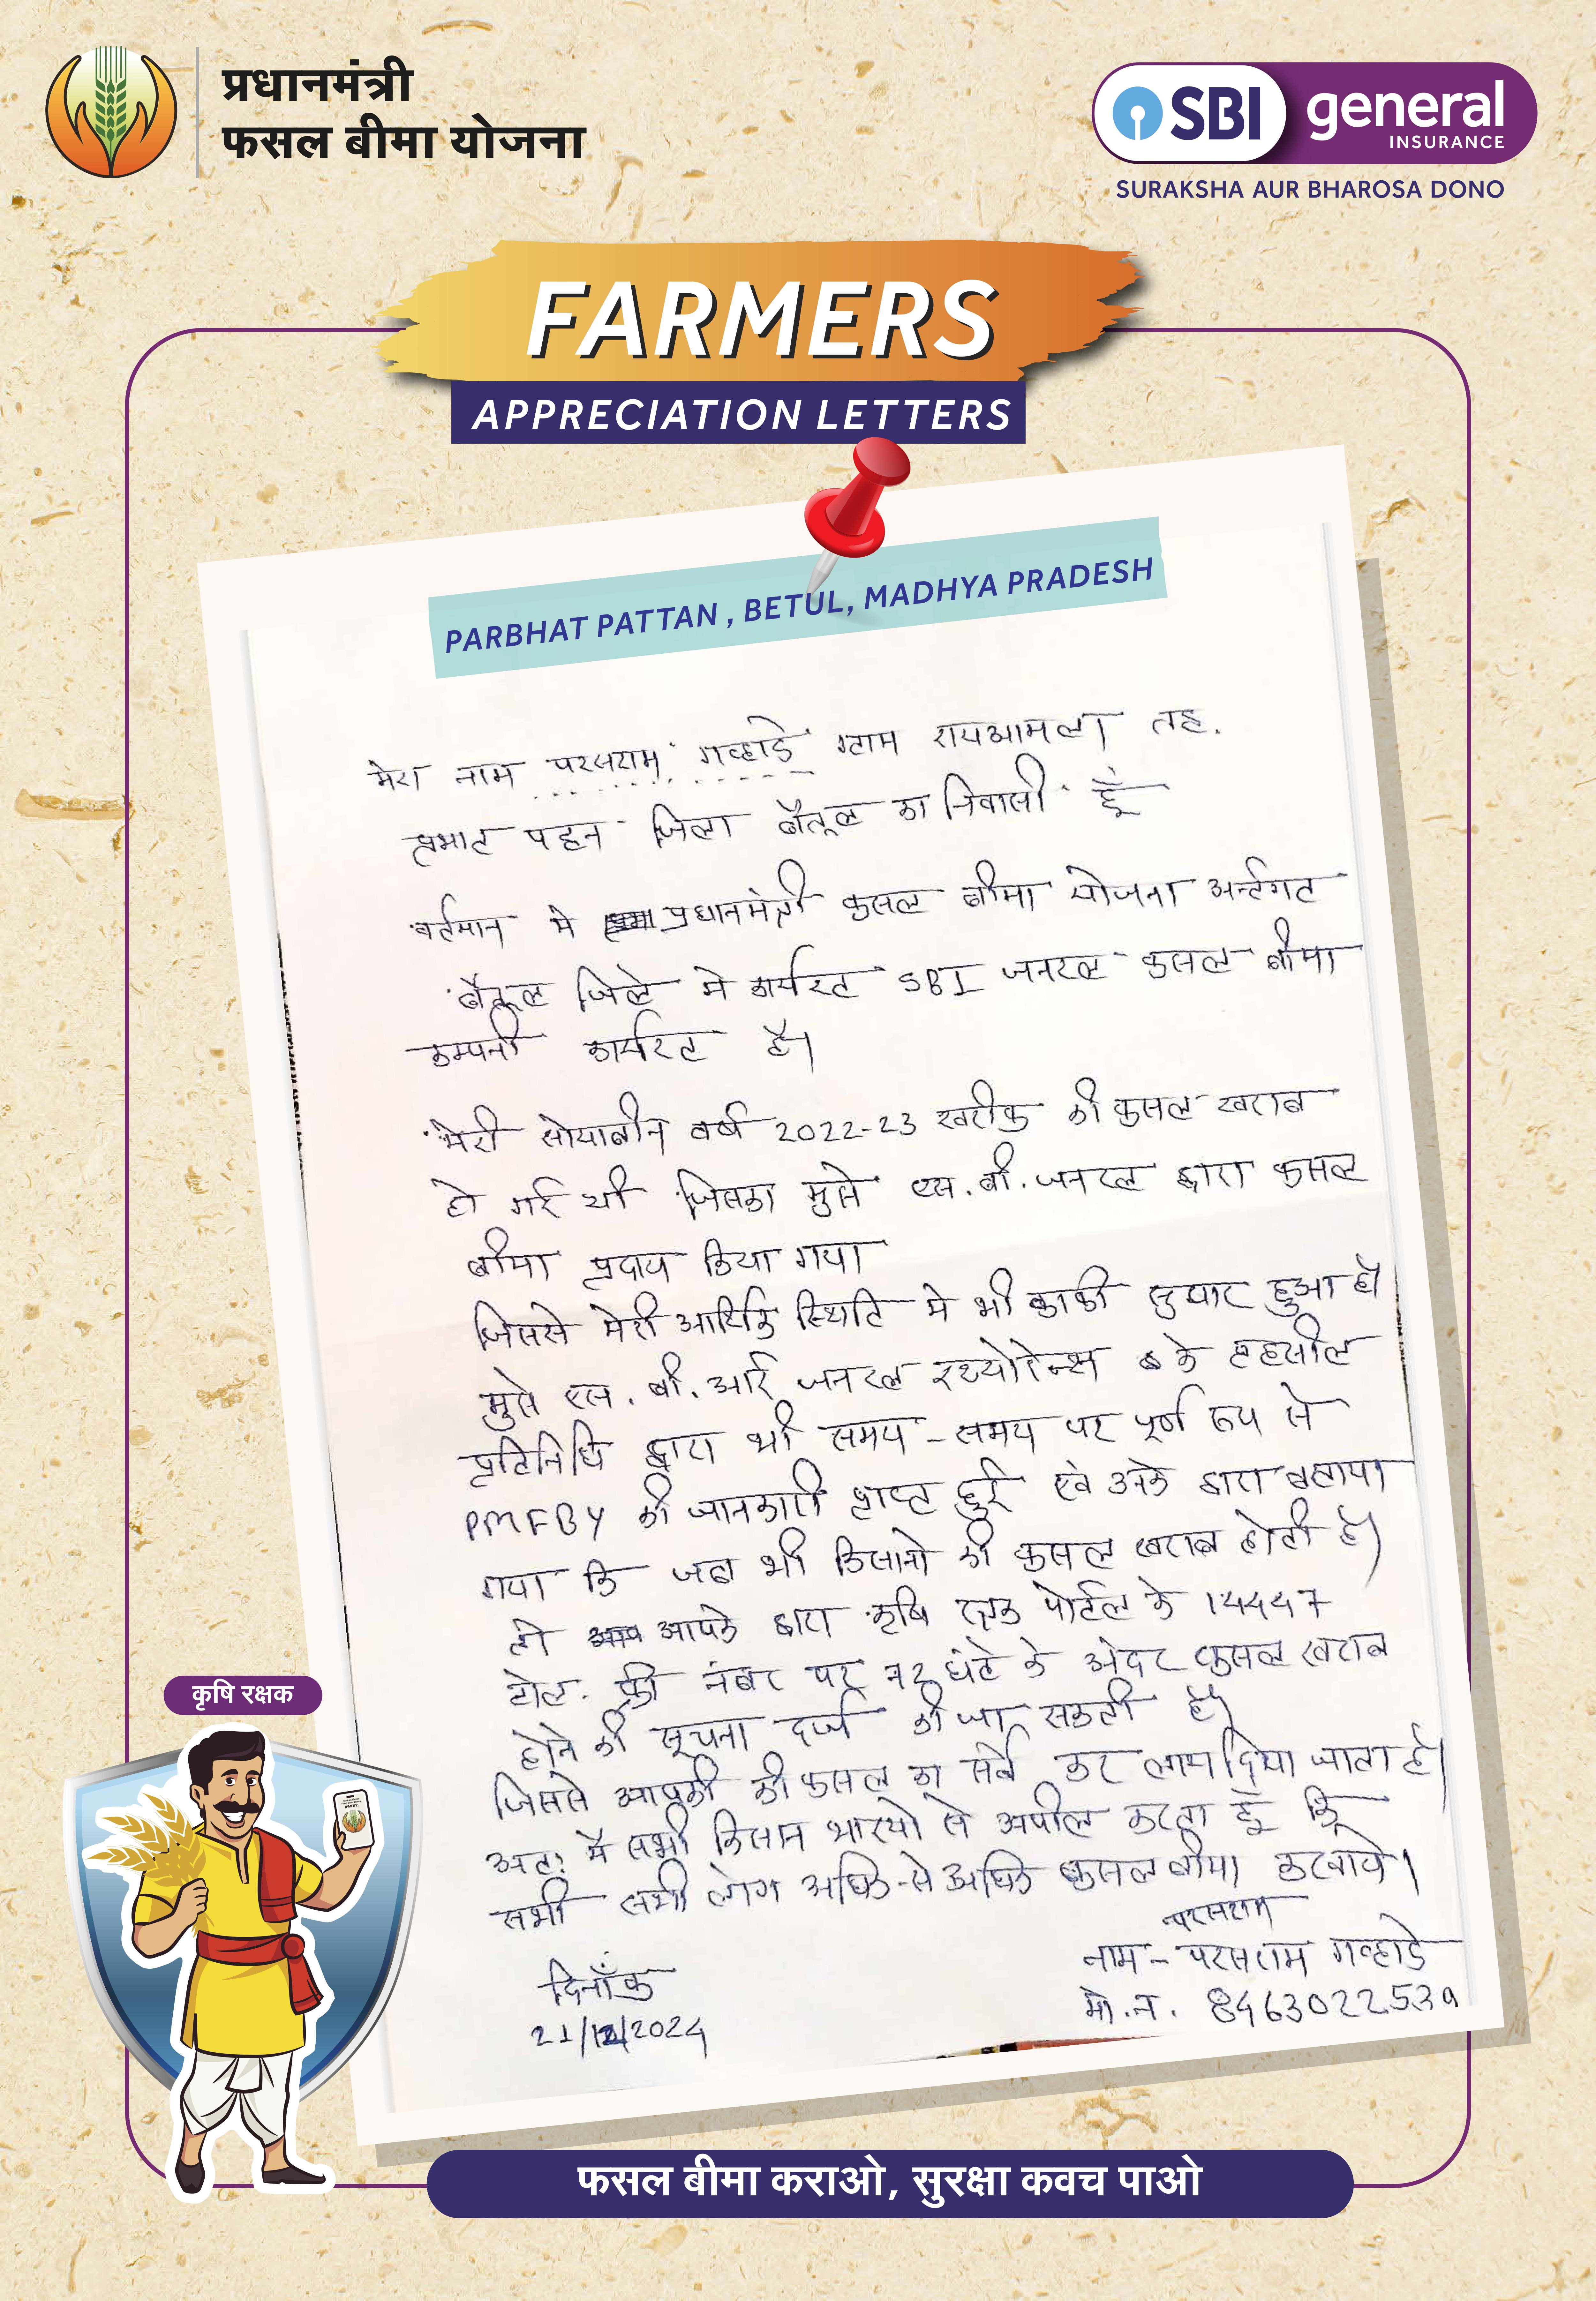 प्रधानमंत्री
फसल बीमा योजना
SBI general
INSURANCE
SURAKSHA AUR BHAROSA DONO
FARMERS
APPRECIATION LETTERS
PARBHAT PATTAN , BETUL, MADHYA PRADESH
मेरा नाम परसराम गव्हाडे ग्राम रायआमला तह.
प्रभात पट्टन जिला बैतूल का निवासी हूँ
वर्तमान मे प्रधानमंत्री फसल बीमा योजना अर्न्तगत
बैतूल जिले मे कार्यरत SBI जनरल फसल बीमा
कम्पनी कार्यरत है।
मेरी सोयाबीन वर्ष 2022-23 खरीफ की फसल खराब
हो गई थी जिसका मुझे एस.बी.जनरल द्वारा फसल
बीमा प्रदाय किया गया
जिससे मेरी आर्थिक स्थिति मे भी काफी सुधार हुआ है
मुझे एस.बी.आई जनरल इंश्योरेन्स के तहसील
प्रतिनिधि द्वारा भी समय-समय पर पूर्ण रूप से
PMFBY की जानकारी प्राप्त हुई एवं उनके द्वारा बताया
गया कि जब भी किसानो की फसल खराब होती है।
तो आपके द्वारा कृषि रक्षक पोर्टल के 14447
टोल. फ्री नंबर पर 72 घंटे के अंदर फसल खराब
होने की सूचना दर्ज की जा सकती है।
जिससे आपकी की फसल का सर्वे कर लाभ दिया जाता है।
अतः मै सभी किसान भाइयो से अपील करता हूँ कि
सभी सभी लोग अधिक-से अधिक फसल बीमा करवाये।
परसराम
नाम - परसराम गव्हाडे
मो.न. 8463022539
दिनाँक
21/12/2024
कृषि रक्षक
फसल बीमा कराओ, सुरक्षा कवच पाओ